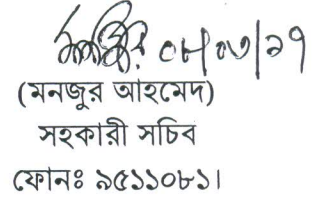 ০৮/০৩/১৭
(মনজুর আহমেদ)
সহকারী সচিব
ফোনঃ ৯৫১১০৮১।